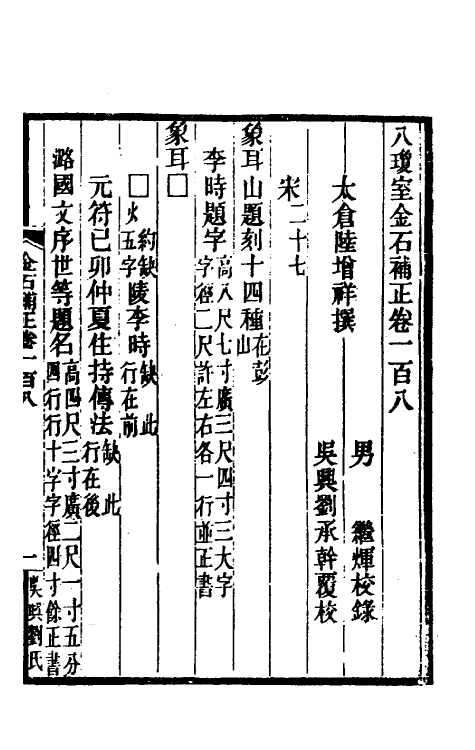 八瓊室金石補正卷一百八
太倉陸增祥撰
男　　繼煇校錄
吳興劉承幹覆校
宋二十七
象耳山題刻十四種在彭山
李時題字高八尺七寸廣三尺四寸三大字字徑二尺許左右各一行並正書
象耳□
□約缺五字火陵李時缺此行在前
元符己卯仲夏住持傳法缺此行在後
潞國文序世等題名高四尺三寸廣二尺一寸五分四行行十字字徑四寸餘正書
金石補正卷一百八
一
吳興劉氏